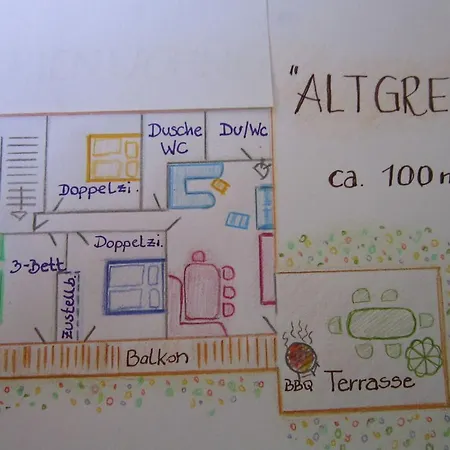 "ALTGRE
ca. 100m
Dusche
WC
Du/Wc
Doppelzi.
Doppelzi.
3-Bett
zustellb.
Balkon
BBQ
Terrasse